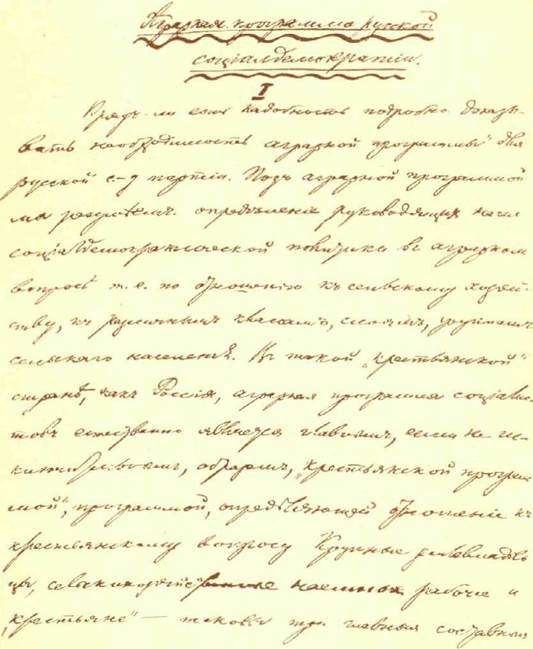 Аграрная программа русской
соціалдемократіи.
I
Врядъ-ли есть надобность подробно доказы-
вать необходимость аграрной программы для
русской с.-д. партіи. Подъ аграрной программой
мы разумѣемъ опредѣленіе руководящихъ началъ
соціалдемократической политики въ аграрномъ
вопросѣ т. е. по отношенію къ сельскому хозяй-
ству, къ различнымъ классамъ, слоямъ, группамъ
сельскаго населенія. Въ такой „крестьянской"
странѣ, какъ Россія, аграрная программа соціалис-
товъ естественно является главнымъ, если не ис-
ключительнымъ, образомъ, „крестьянской програм-
мой", программой, опредѣляющей отношеніе къ
крестьянскому вопросу Крупные землевладѣль-
цы, сельскохозяйств наемные рабочіе и
„крестьяне" — таковы три главныя составныя